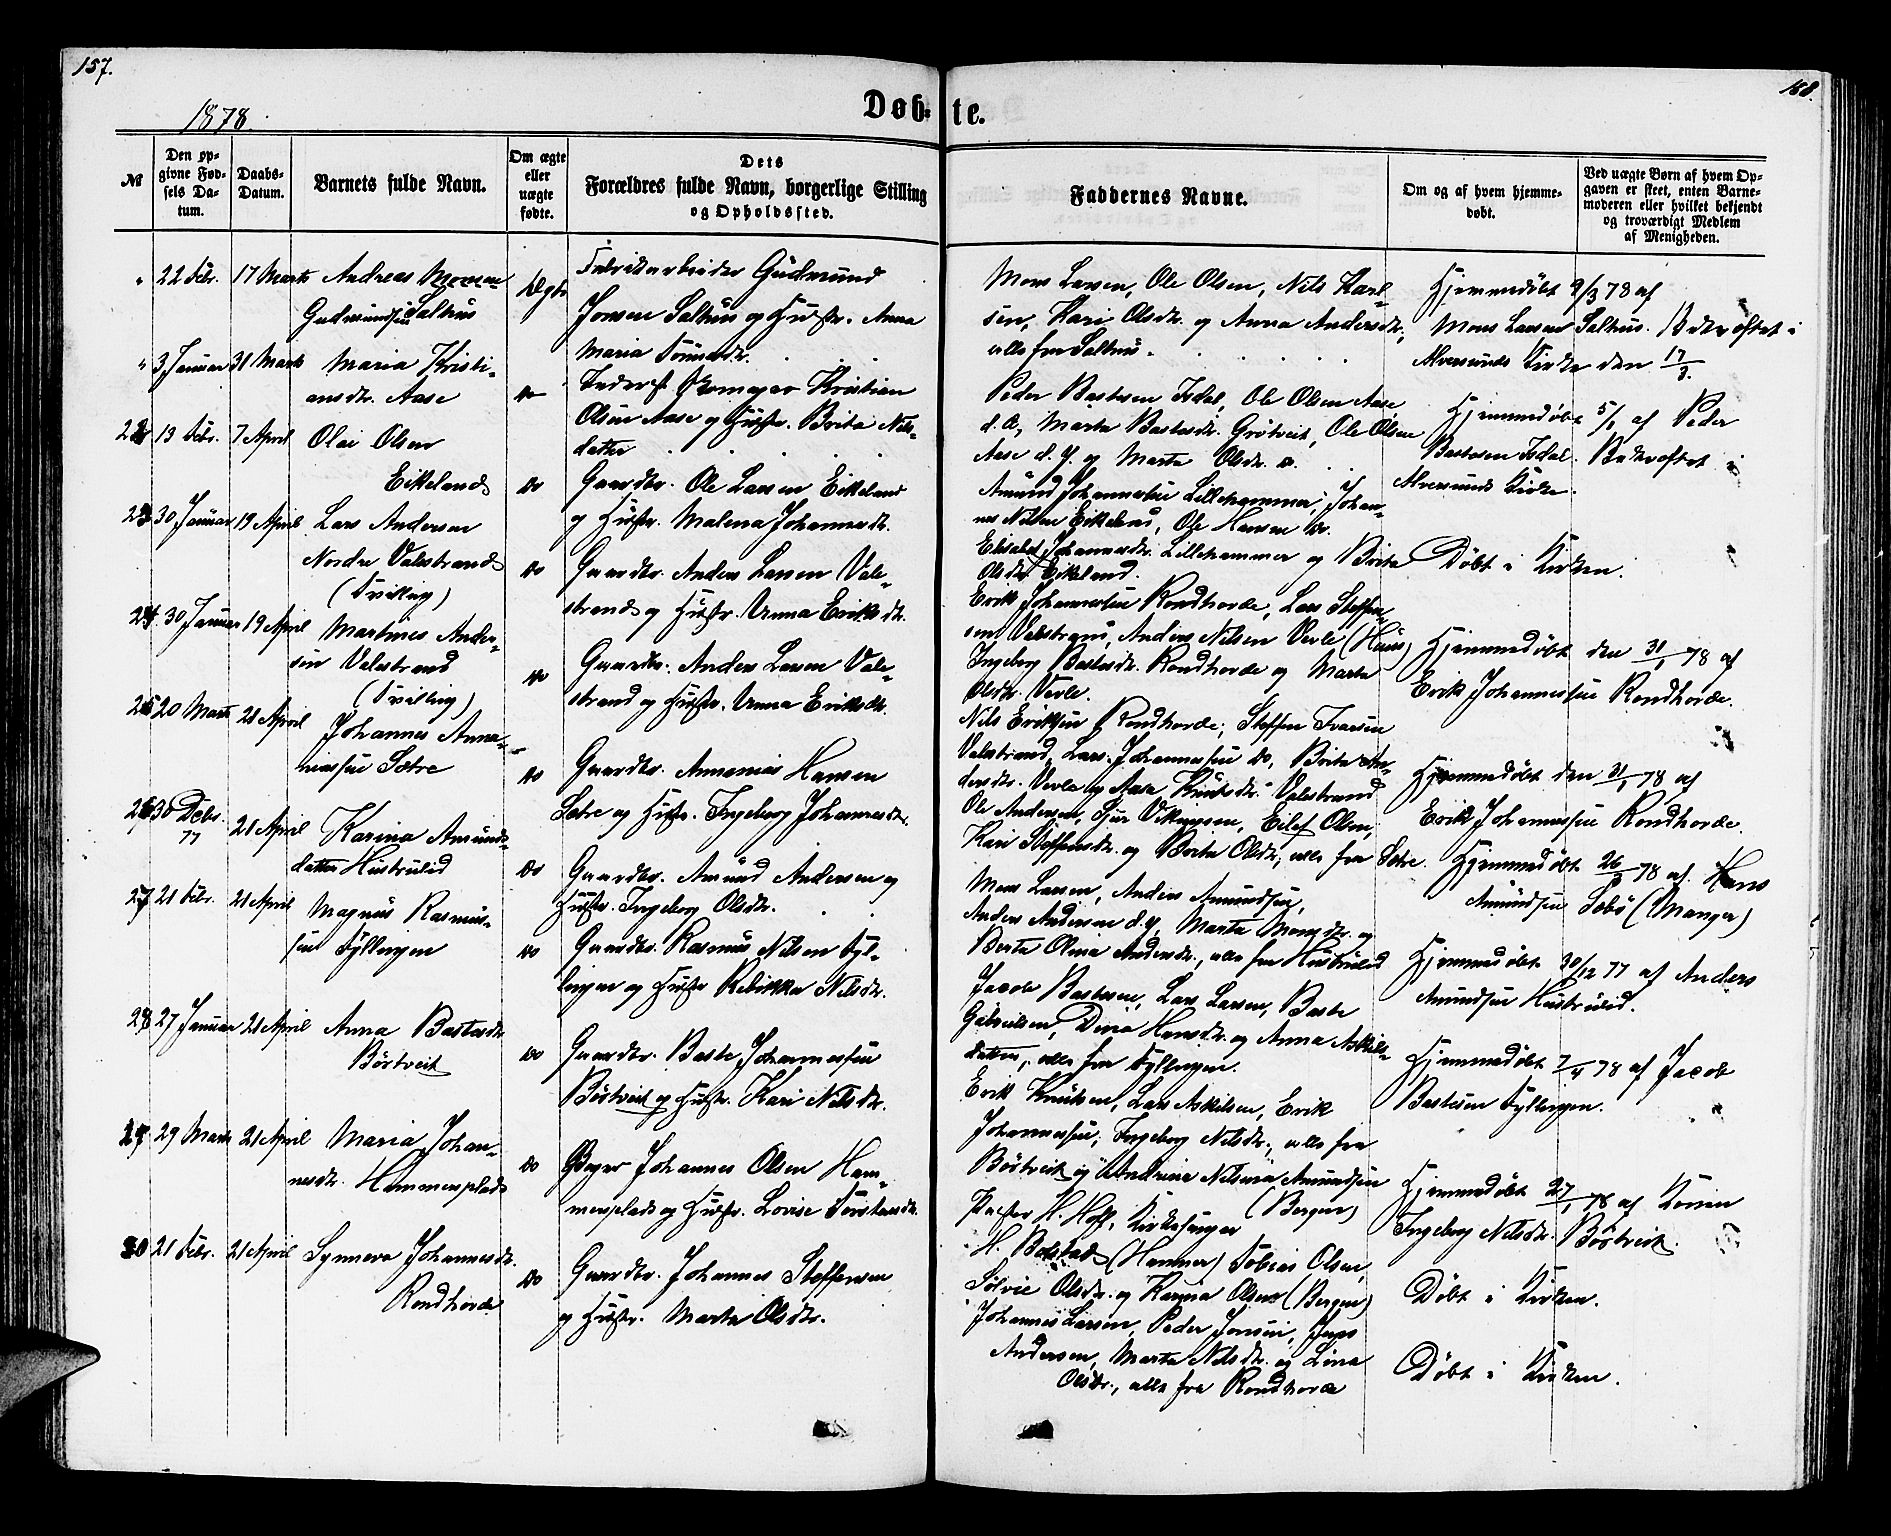 157.
158.
1878.
Døb-
te.
№
Den op-
givne Fød-
sels Da-
tum.
Daabs-
Datum.
Barnets fulde Navn.
Om ægte
eller
uægte
fødte.
Dets
Forældres fulde Navn, borgerlige Stilling
og Opholdssted.
Faddernes Navne.
Om og af hvem hjemme-
døbt.
Ved uægte Børn af hvem Op-
gaven er skeet, enten Barne-
moderen eller hvilket bekjendt
og troværdigt Medlem
af Menigheden.
" 22 Febr. 17 Marts Andreas Monsen
Gudmundsen Salhus
Ægte
Fabrikarbeider Gudmund
Jonsen Salhus og Hustr. Anna
Maria Tomasdtr.
Mons Larsen, Ole Olsen, Nils Karl-
sen, Kari Olsdtr. og Anna Andersdtr.,
alle fra Salhus.
Hjemmedøbt 9/3 78 af
Mons Larsen Salhus. Bekræftet i
Alversunds Kirke den 17/3.
" 3 Januar 31 Marts Maria Kristi-
ansdtr. Aase
do
Inderst Kristian
Olsen Aase og Hustr. Brita Nils-
datter
Peder Bastesen Isdal, Ole Olsen Aase
d. Æ, Marta Bastesdtr. Grötveit, Ole Olsen
Aase d. Y. og Marta Olsdtr. do.
Hjemmedøbt 5/1 af Peder
Bastesen Isdal. Bekræftet i
Alversunds Kirke.
22 13 Febr. 7 April Olai Olsen
Eikeland
do
Gaardbr. Ole Larsen Eikeland
og Hustr. Malena Johannesdtr.
Amund Johannessen Lillehammer, Johan-
nes Nilsen Eikeland, Ole Hansen do.
Elisabet Johannesdtr. Lillehammer og Brita
Olsdtr. Eikeland.
Døbt i Kirken.
23 30 Januar 19 April Lars Andersen
Nordre Valestrand
(Tvilling)
do
Gaardbr. Anders Larsen Vale-
strand og Hustr. Unna Eriksdtr.
Erik Johannessen Rondhovde, Lars Steffen-
sen Valestrand, Anders Nilsen Verle (Hus)
Ingeborg Bastesdtr. Rondhovde og Marta
Olsdtr. Verle.
Hjemmedøbt den 31/1 78 af
Erik Johannessen Rondhovde.
24 30 Januar 19 April Martines Ander-
sen Valestrand
(Tvilling)
do
Gaardbr. Anders Larsen Vale-
strand og Hustr. Unna Eriksdtr.
Nils Eriksen Rondhovde, Steffen Ivarsen
Valestrand, Lars Johannessen do, Brita An-
dersdtr. Verle og Aase Knutsdtr. Valestrand
Hjemmedøbt den 31/1 78 af
Erik Johannessen Rondhovde.
25 20 Marts 21 April Johannes Anna-
niassen Sætre
do
Gaardbr. Annanias Hansen
Sætre og Hustr. Ingeborg Johannesdtr.
Ole Andersen, Sjur Vikingsen, Eilef Olsen,
Kari Steffensdtr. og Brita Olsdtr., alle fra Sætre.
Hjemmedøbt 26/ 78 af Hans
Amundsen Sæbø (Manger)
26 30 Debr. 77 21 April Karina Amunds-
datter Hustrulid
do
Gaardbr. Amund Andersen og
Hustr. Ingeborg Olsdtr.
Mons Larsen, Anders Amundsen,
Anders Andersen d. y, Marta Monsdtr. og
Berta Olina Andersdtr., alle fra Hustrulid
Hjemmedøbt 30/12 77 af Anders
Amundsen Hustrulid.
27 21 Febr. 21 April Magnus Rasmus-
sen Fyllingen
do
Gaardbr. Rasmus Nilsen Fyl-
lingen og Hustr. Rebikka Nilsdtr.
Jacob Bastesen, Lars Larsen, Baste
Gabrielsen, Dina Hansdtr. og Anna Askils-
datter, alle fra Fyllingen.
Hjemmedøbt 7/4 78 af Jacob
Bastesen Fyllingen.
28 27 Januar 21 April Anna Bastesdtr.
Börtveit
do
Gaardbr. Baste Johannessen
Börtveit og Hustr. Kari Nilsdtr.
Erik Knutsen, Lars Askilsen, Erik
Johannessen, Ingeborg Nilsdtr., alle fra
Börtveit og Andrine Nilsina Amundsen
(Bergen)
Hjemmedøbt 27/1 78 af Konen
Ingeborg Nilsdtr. Börtveit.
29 29 Marts 21 April Maria Johan-
nesdtr. Hammersplads
do
Bager Johannes Olsen Ham-
mersplads og Hustr. Lovise Torstensdtr.
Præsten H. Hoff, Kirkesanger
H. Bolstad (Hammer) Tobias Olsen,
Sølvie Olsdtr. og Karina Olsen (Bergen)
Døbt i Kirken.
30 21 Febr. 21 April Synneva Johannesdtr.
Rondhovde
do
Gaardbr. Johannes Steffensen
og Hustr. Marta Olsdtr.
Johannes Larsen, Peder Jonsen, Jens
Andersen, Marta Nilsdtr. og Lina
Olsdtr., alle fra Rondhovde
Døbt i Kirken.